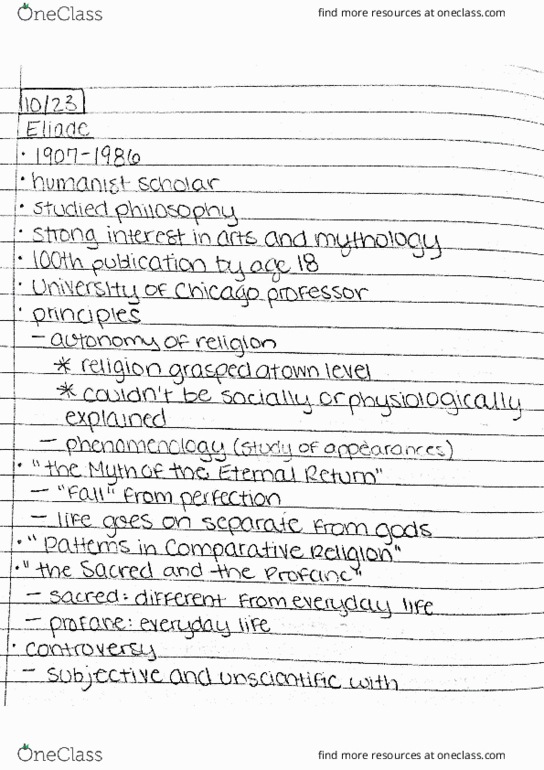 OneClass
find more resources at oneclass.com
10/23
Eliade
· 1907-1986
· humanist scholar
· studied philosophy
· strong interest in arts and mythology
· 100th publication by age 18
· University of Chicago professor
· principles
- autonomy of religion
* religion grasped at own level
* couldn't be socially or physiologically
explained
- phenomenology (study of appearances)
· "the Myth of the Eternal Return"
- "Fall" from perfection
- life goes on separate from gods
· "Patterns in Comparative Religion"
· "the Sacred and the Profane"
- sacred: different from everyday life
- profane: everyday life
· controversy
- subjective and unscientific with
OneClass
find more resources at oneclass.com